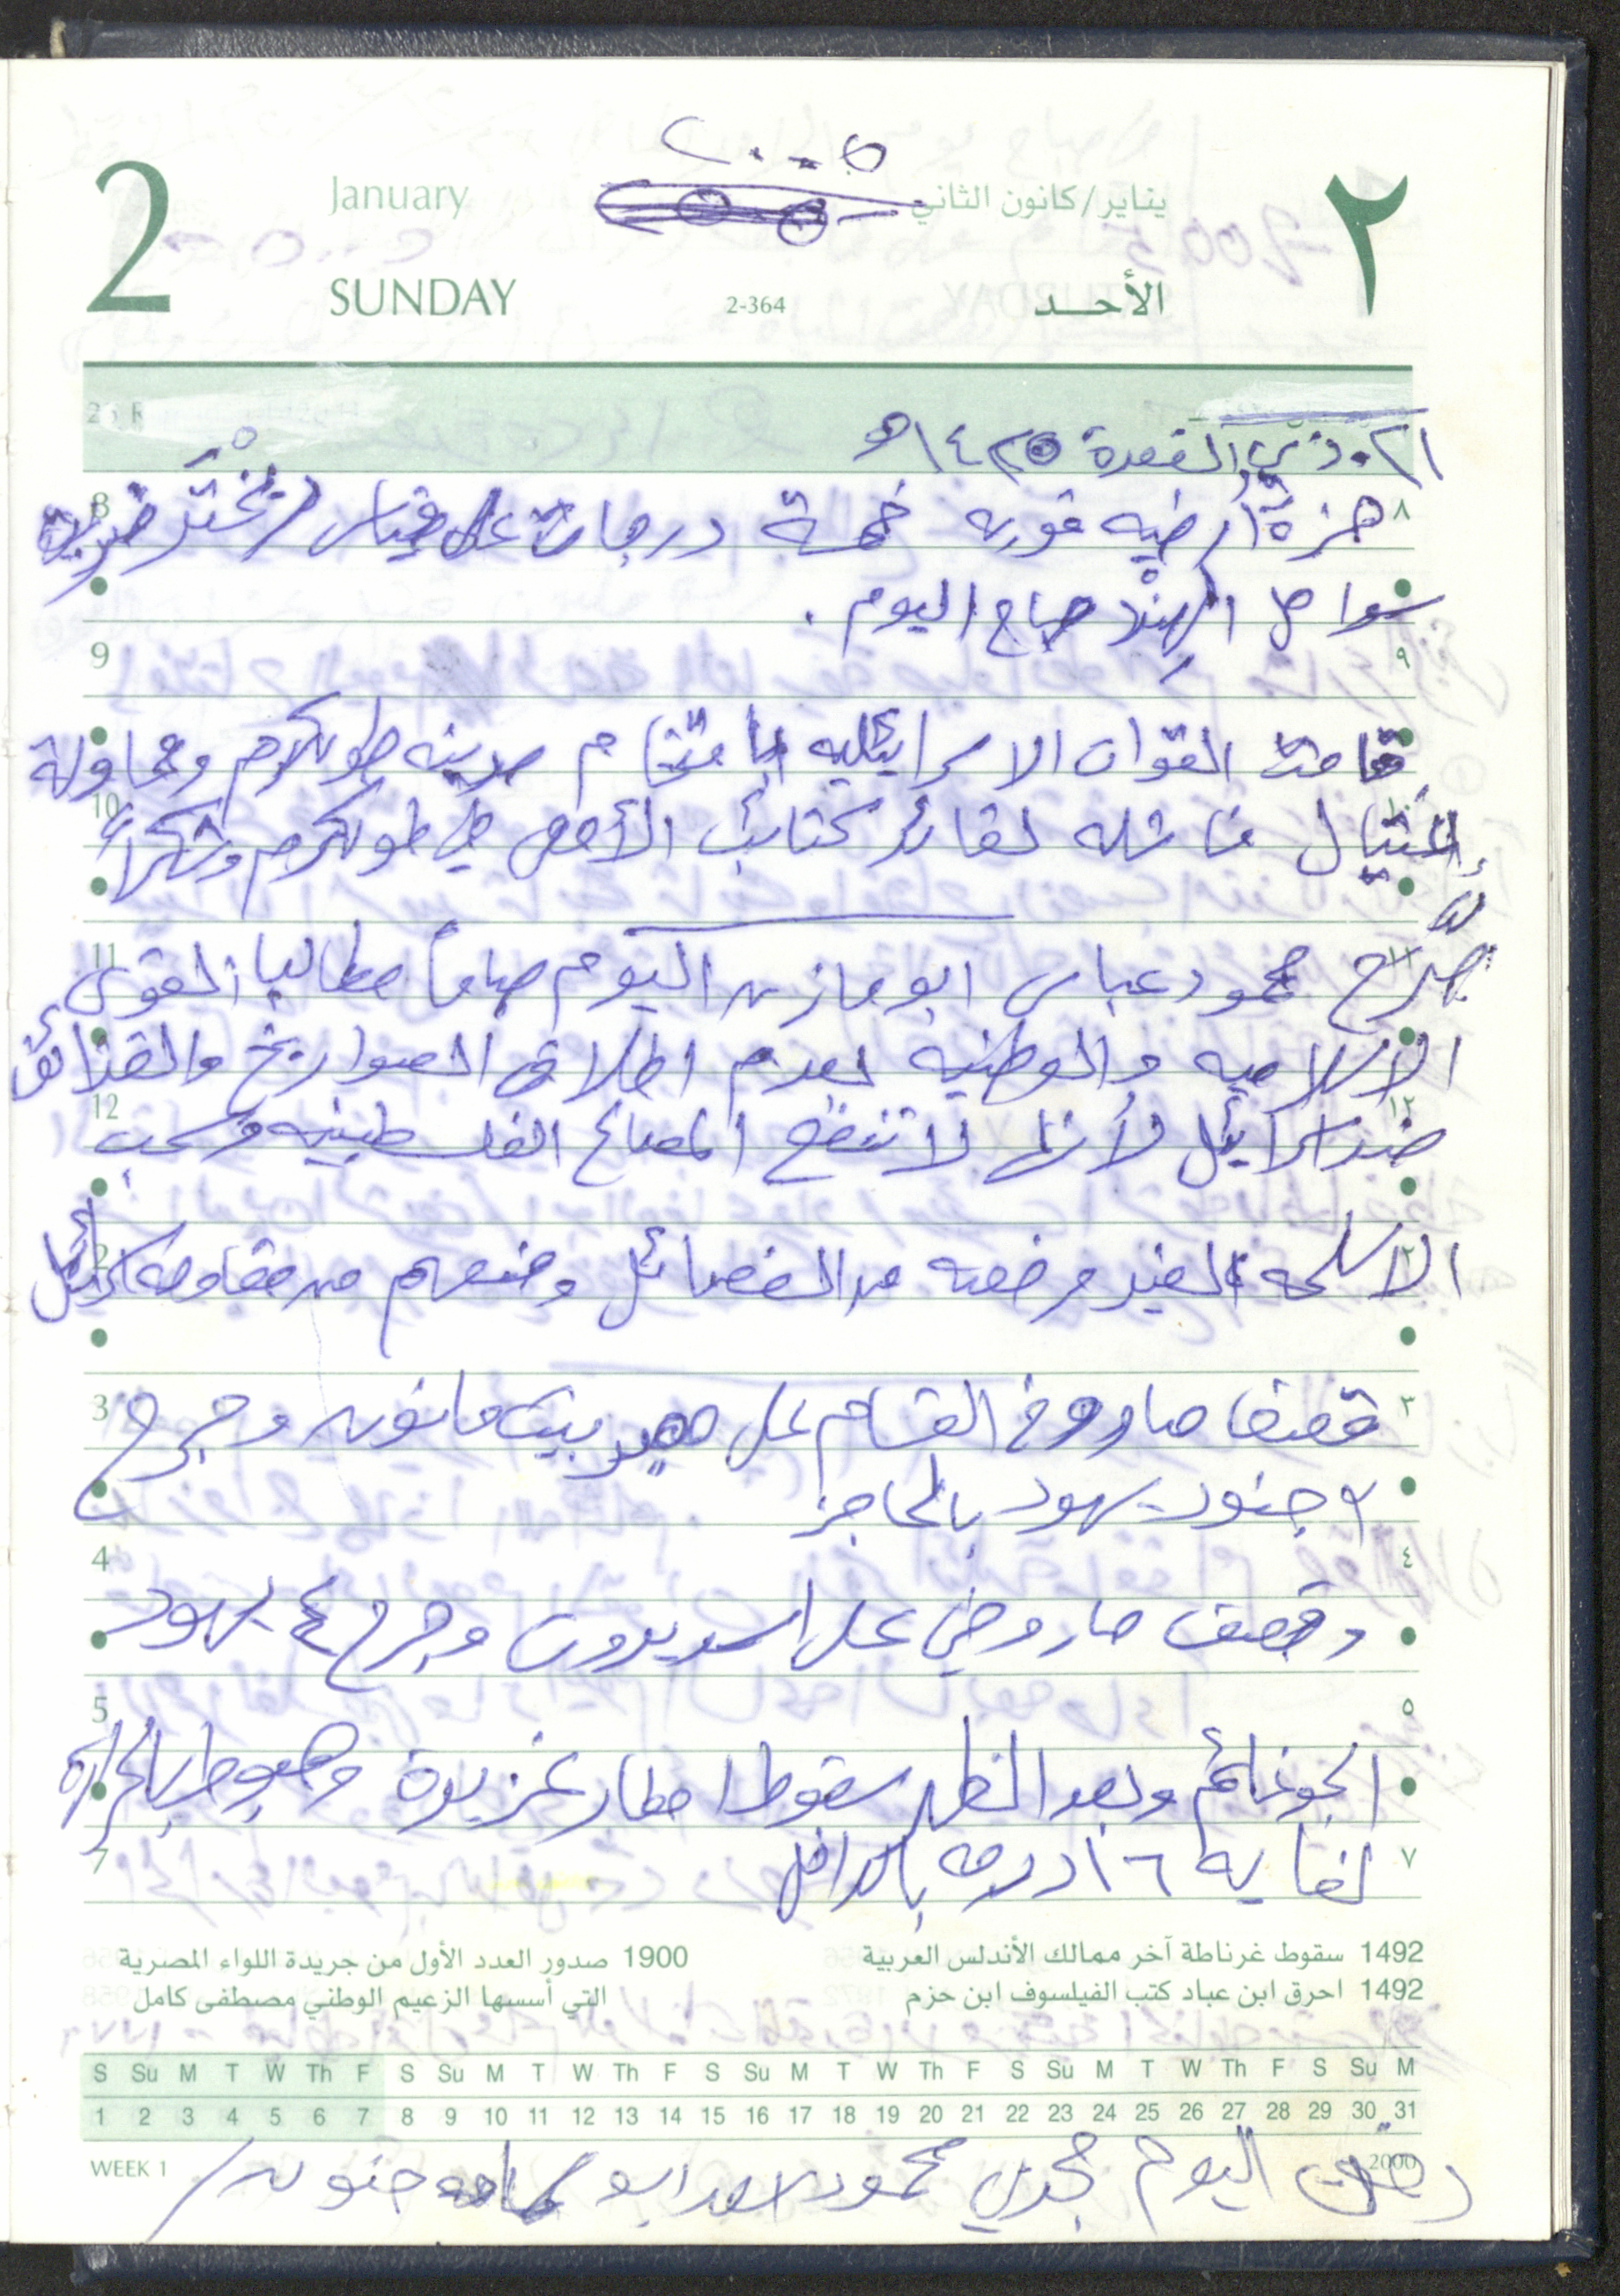 ٢٠٠٥
2 January يناير/كانون الثاني ٢
SUNDAY 2-364 الأحد
٢١ ذي القعدة ١٤٢٥ه
8 هزة أرضيه قوية خمسة درجات على مقياس ريختر ضربت ٨
سواحل الهند صباح اليوم .
9 ٩
قامت القوات الاسرائيليه باقتحام مدينه طولكرم ومحاولة
10 إغتيال فاشله لقائد كتائب الأقصى في طولكرم وشكراً
لله
11 صرّح محمود عباس ابو مازن اليوم صباحاً مطالبا القوى
الاسلاميه والوطنيه بعدم اطلاق الصواريخ والقذائف
12 ضد اسرائيل لأنها لا تنفع المصالح الفلسطينيه وسحب ١٢
2 الاسلحه الغير مرخصه من الفصائل ومنعهم من مقاومه اسرائيل ٢
3 قصف صاروخ القسام على بيت حانون وجرح ٣
٢ جنود يهود بالحاجز
4 ٤
وقصف صاروخي على اسديروت وجرح ٤ يهود
5 ٥
الجو غائم وبعد الظهر سقوط امطار غزيرة وهبوط بالحرارة
7 لغايه ١٦ درجه بالداخل ٧
1492 سقوط غرناطة آخر ممالك الأندلس العربية
1492 احرق ابن عباد كتب الفيلسوف ابن حزم
1900 صدور العدد الأول من جريدة اللواء المصرية
التي أسسها الزعيم الوطني مصطفى كامل
S Su M T W Th F S Su M T W Th F S Su M T W Th F S Su M T W Th F S Su M
1 2 3 4 5 6 7 8 9 10 11 12 13 14 15 16 17 18 19 20 21 22 23 24 25 26 27 28 29 30 31
WEEK 1 2000
اليوم مجدي محمود اسعد ابو